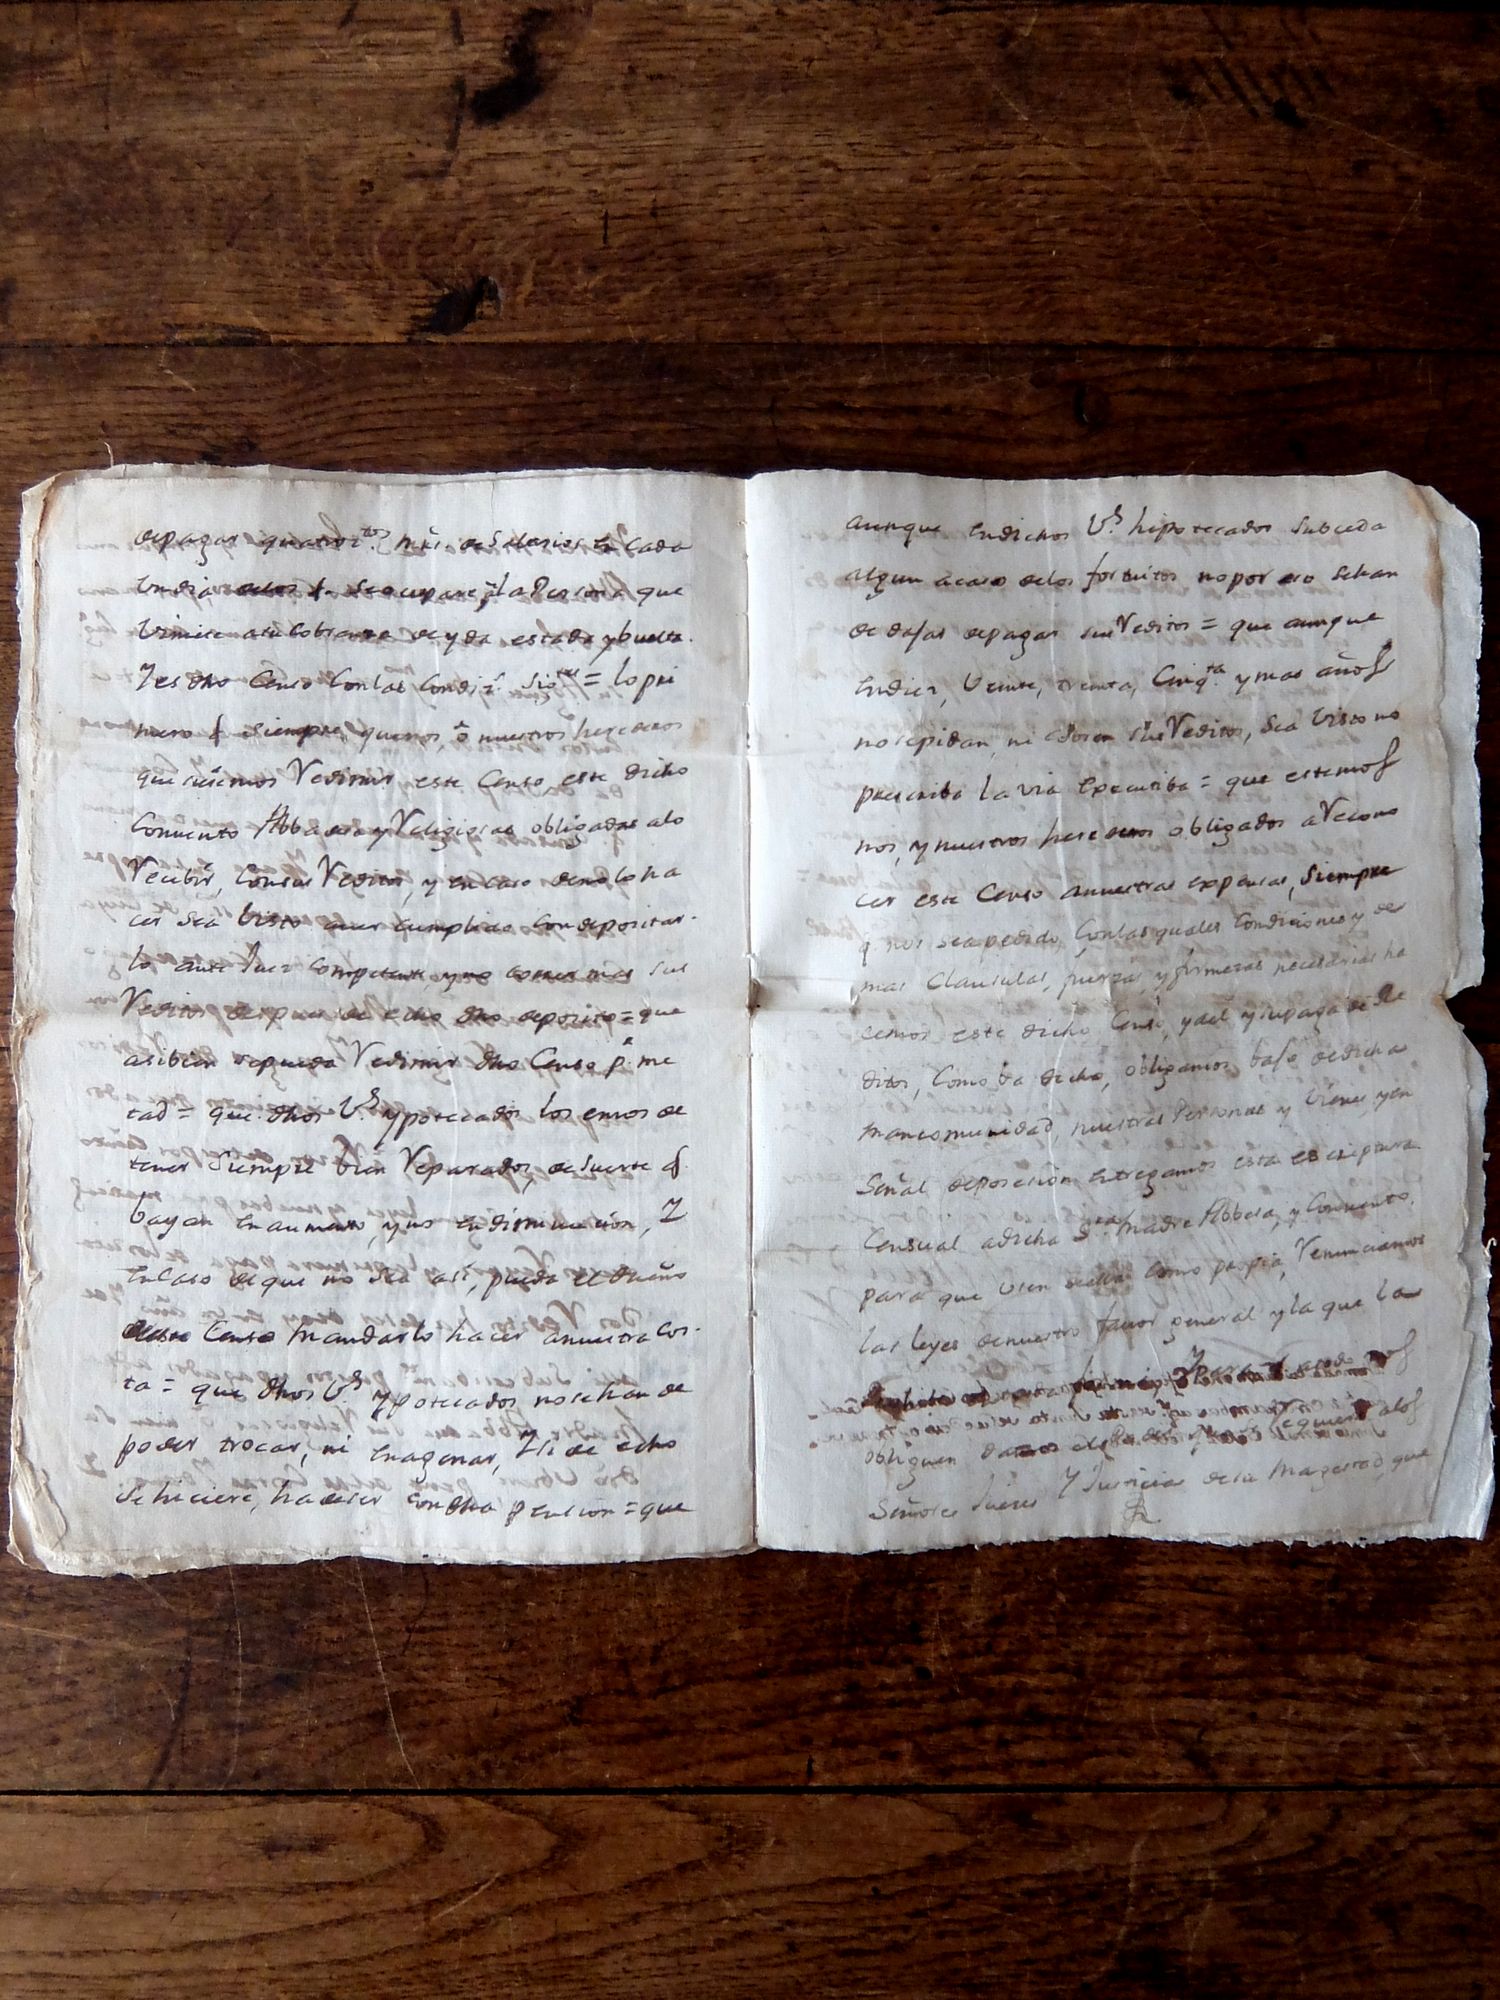 depagar quatroc.tos mrs. desalarios en cada
Undia delos q. seocupare, â la Persona que
Viniere asucobranza deyda estada ybuelta.
Yes dho Censo Conlas Condiz.s Sig.tes = lo pri
mero q siempre, quenos, ô nuestros herederos
quisieremos Vedimir este Censo, este dicho
Convento Abbadesa y Veligiosas obligadas alo
Vecibir, Consus Veditos, y encaso denoloha
cer sea Visto aver cumplido condepositar-
lo ante Juez competente, yno corran mas sus
Veditos despues de echo dho deposito = que
asibien sepueda Vedimir dho Censo p.r me
tad = que dhos V.s ypotecados los emos de
tener Siempre bien Veparados, desuerte q.
bayan en aumento, yno endiminucion, Y
encaso deque no sea asi, pueda el dueño
deste Censo mandarlo hacer anuestra cos-
ta = que dhos V.s ypotecados nosehan de
poder trocar, ni enagenar, Ysi de echo
Sehiciere, hadeser condha pension = que
aunque endichos V.s hipotecados subceda
algun acaso delos fortuitos noporeso sehan
de dejar depagar sus Veditos = que aunque
endiez, Veinte, treinta, Cinq.ta ymas años
nosepidan, ni cobren sus Veditos, sea Visto no
prescriba la via executiba = que estemos
nos, ynuestros herederos obligados aVecono
cer este Censo anuestras expensas, Siempre
q. nos seapedido, Conlas quales Condiciones y de
mas Clausulas, fuerzas, yfirmezas necesarias ha
cemos este dicho Censo, yael ysupaga de Re
ditos, Como ba dicho, obligamos bajo dedicha
mancomunidad, nuestras Personas y Vienes yen
Señal deposesion entregamos esta escriptura
Censual adicha S.ra Madre Abbesa, y Convento.
para que usen della como propia, Venunciamos
las leyes denuestro favor general yla que la
obliguen damos
Señores Jueces Y Justicias desu Magestad que